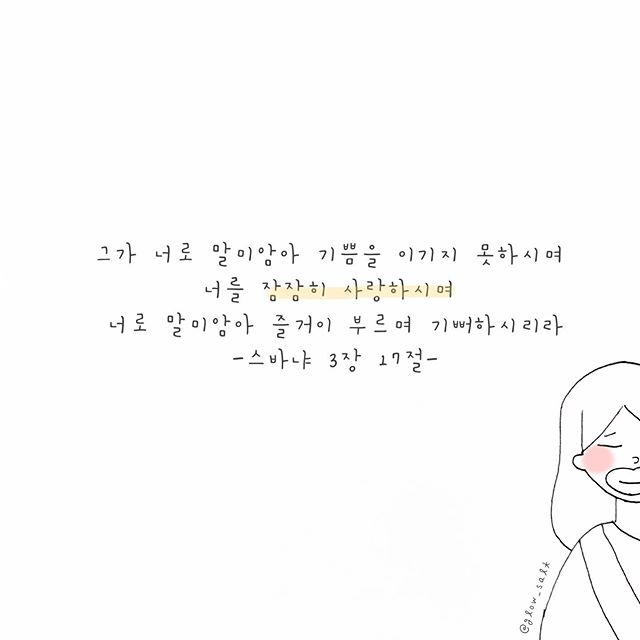 그가 너로 말미암아 기쁨을 이기지 못하시며
너를 잠잠히 사랑하시며
너로 말미암아 즐거이 부르며 기뻐하시리라
-스바냐 3장 17절-
@glow_salt